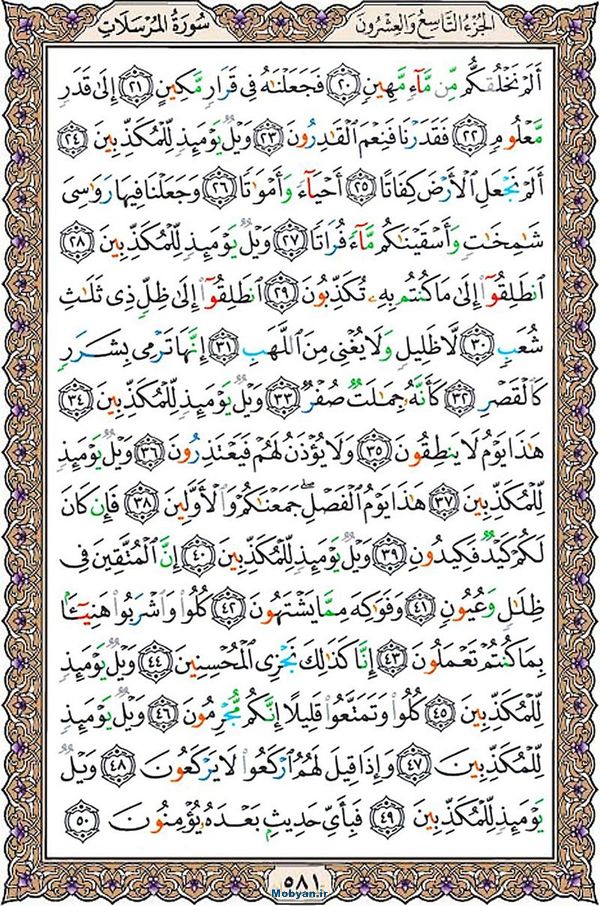 الجزء التاسع والعشرون
سورة المرسلات
أَلَمْ نَخْلُقكُّم مِّن مَّآءٍ مَّهِينٍ ﴿٢٠﴾ فَجَعَلْنَٰهُ فِى قَرَارٍ مَّكِينٍ ﴿٢١﴾ إِلَىٰ قَدَرٍ
مَّعْلُومٍ ﴿٢٢﴾ فَقَدَرْنَا فَنِعْمَ ٱلْقَٰدِرُونَ ﴿٢٣﴾ وَيْلٌ يَوْمَئِذٍ لِّلْمُكَذِّبِينَ ﴿٢٤﴾
أَلَمْ نَجْعَلِ ٱلْأَرْضَ كِفَاتًا ﴿٢٥﴾ أَحْيَآءً وَأَمْوَٰتًا ﴿٢٦﴾ وَجَعَلْنَا فِيهَا رَوَٰسِىَ
شَٰمِخَٰتٍ وَأَسْقَيْنَٰكُم مَّآءً فُرَاتًا ﴿٢٧﴾ وَيْلٌ يَوْمَئِذٍ لِّلْمُكَذِّبِينَ ﴿٢٨﴾
ٱنطَلِقُوٓا۟ إِلَىٰ مَا كُنتُم بِهِۦ تُكَذِّبُونَ ﴿٢٩﴾ ٱنطَلِقُوٓا۟ إِلَىٰ ظِلٍّ ذِى ثَلَٰثِ
شُعَبٍ ﴿٣٠﴾ لَّا ظَلِيلٍ وَلَا يُغْنِى مِنَ ٱللَّهَبِ ﴿٣١﴾ إِنَّهَا تَرْمِى بِشَرَرٍ
كَٱلْقَصْرِ ﴿٣٢﴾ كَأَنَّهُۥ جِمَٰلَتٌ صُفْرٌ ﴿٣٣﴾ وَيْلٌ يَوْمَئِذٍ لِّلْمُكَذِّبِينَ ﴿٣٤﴾
هَٰذَا يَوْمُ لَا يَنطِقُونَ ﴿٣٥﴾ وَلَا يُؤْذَنُ لَهُمْ فَيَعْتَذِرُونَ ﴿٣٦﴾ وَيْلٌ يَوْمَئِذٍ
لِّلْمُكَذِّبِينَ ﴿٣٧﴾ هَٰذَا يَوْمُ ٱلْفَصْلِ ۖ جَمَعْنَٰكُمْ وَٱلْأَوَّلِينَ ﴿٣٨﴾ فَإِن كَانَ
لَكُمْ كَيْدٌ فَكِيدُونِ ﴿٣٩﴾ وَيْلٌ يَوْمَئِذٍ لِّلْمُكَذِّبِينَ ﴿٤٠﴾ إِنَّ ٱلْمُتَّقِينَ فِى
ظِلَٰلٍ وَعُيُونٍ ﴿٤١﴾ وَفَوَٰكِهَ مِمَّا يَشْتَهُونَ ﴿٤٢﴾ كُلُوا۟ وَٱشْرَبُوا۟ هَنِيٓـًٔۢا
بِمَا كُنتُمْ تَعْمَلُونَ ﴿٤٣﴾ إِنَّا كَذَٰلِكَ نَجْزِى ٱلْمُحْسِنِينَ ﴿٤٤﴾ وَيْلٌ يَوْمَئِذٍ
لِّلْمُكَذِّبِينَ ﴿٤٥﴾ كُلُوا۟ وَتَمَتَّعُوا۟ قَلِيلًا إِنَّكُم مُّجْرِمُونَ ﴿٤٦﴾ وَيْلٌ يَوْمَئِذٍ
لِّلْمُكَذِّبِينَ ﴿٤٧﴾ وَإِذَا قِيلَ لَهُمُ ٱرْكَعُوا۟ لَا يَرْكَعُونَ ﴿٤٨﴾ وَيْلٌ
يَوْمَئِذٍ لِّلْمُكَذِّبِينَ ﴿٤٩﴾ فَبِأَىِّ حَدِيثٍۭ بَعْدَهُۥ يُؤْمِنُونَ ﴿٥٠﴾
٥٨١
Mobyan.ir